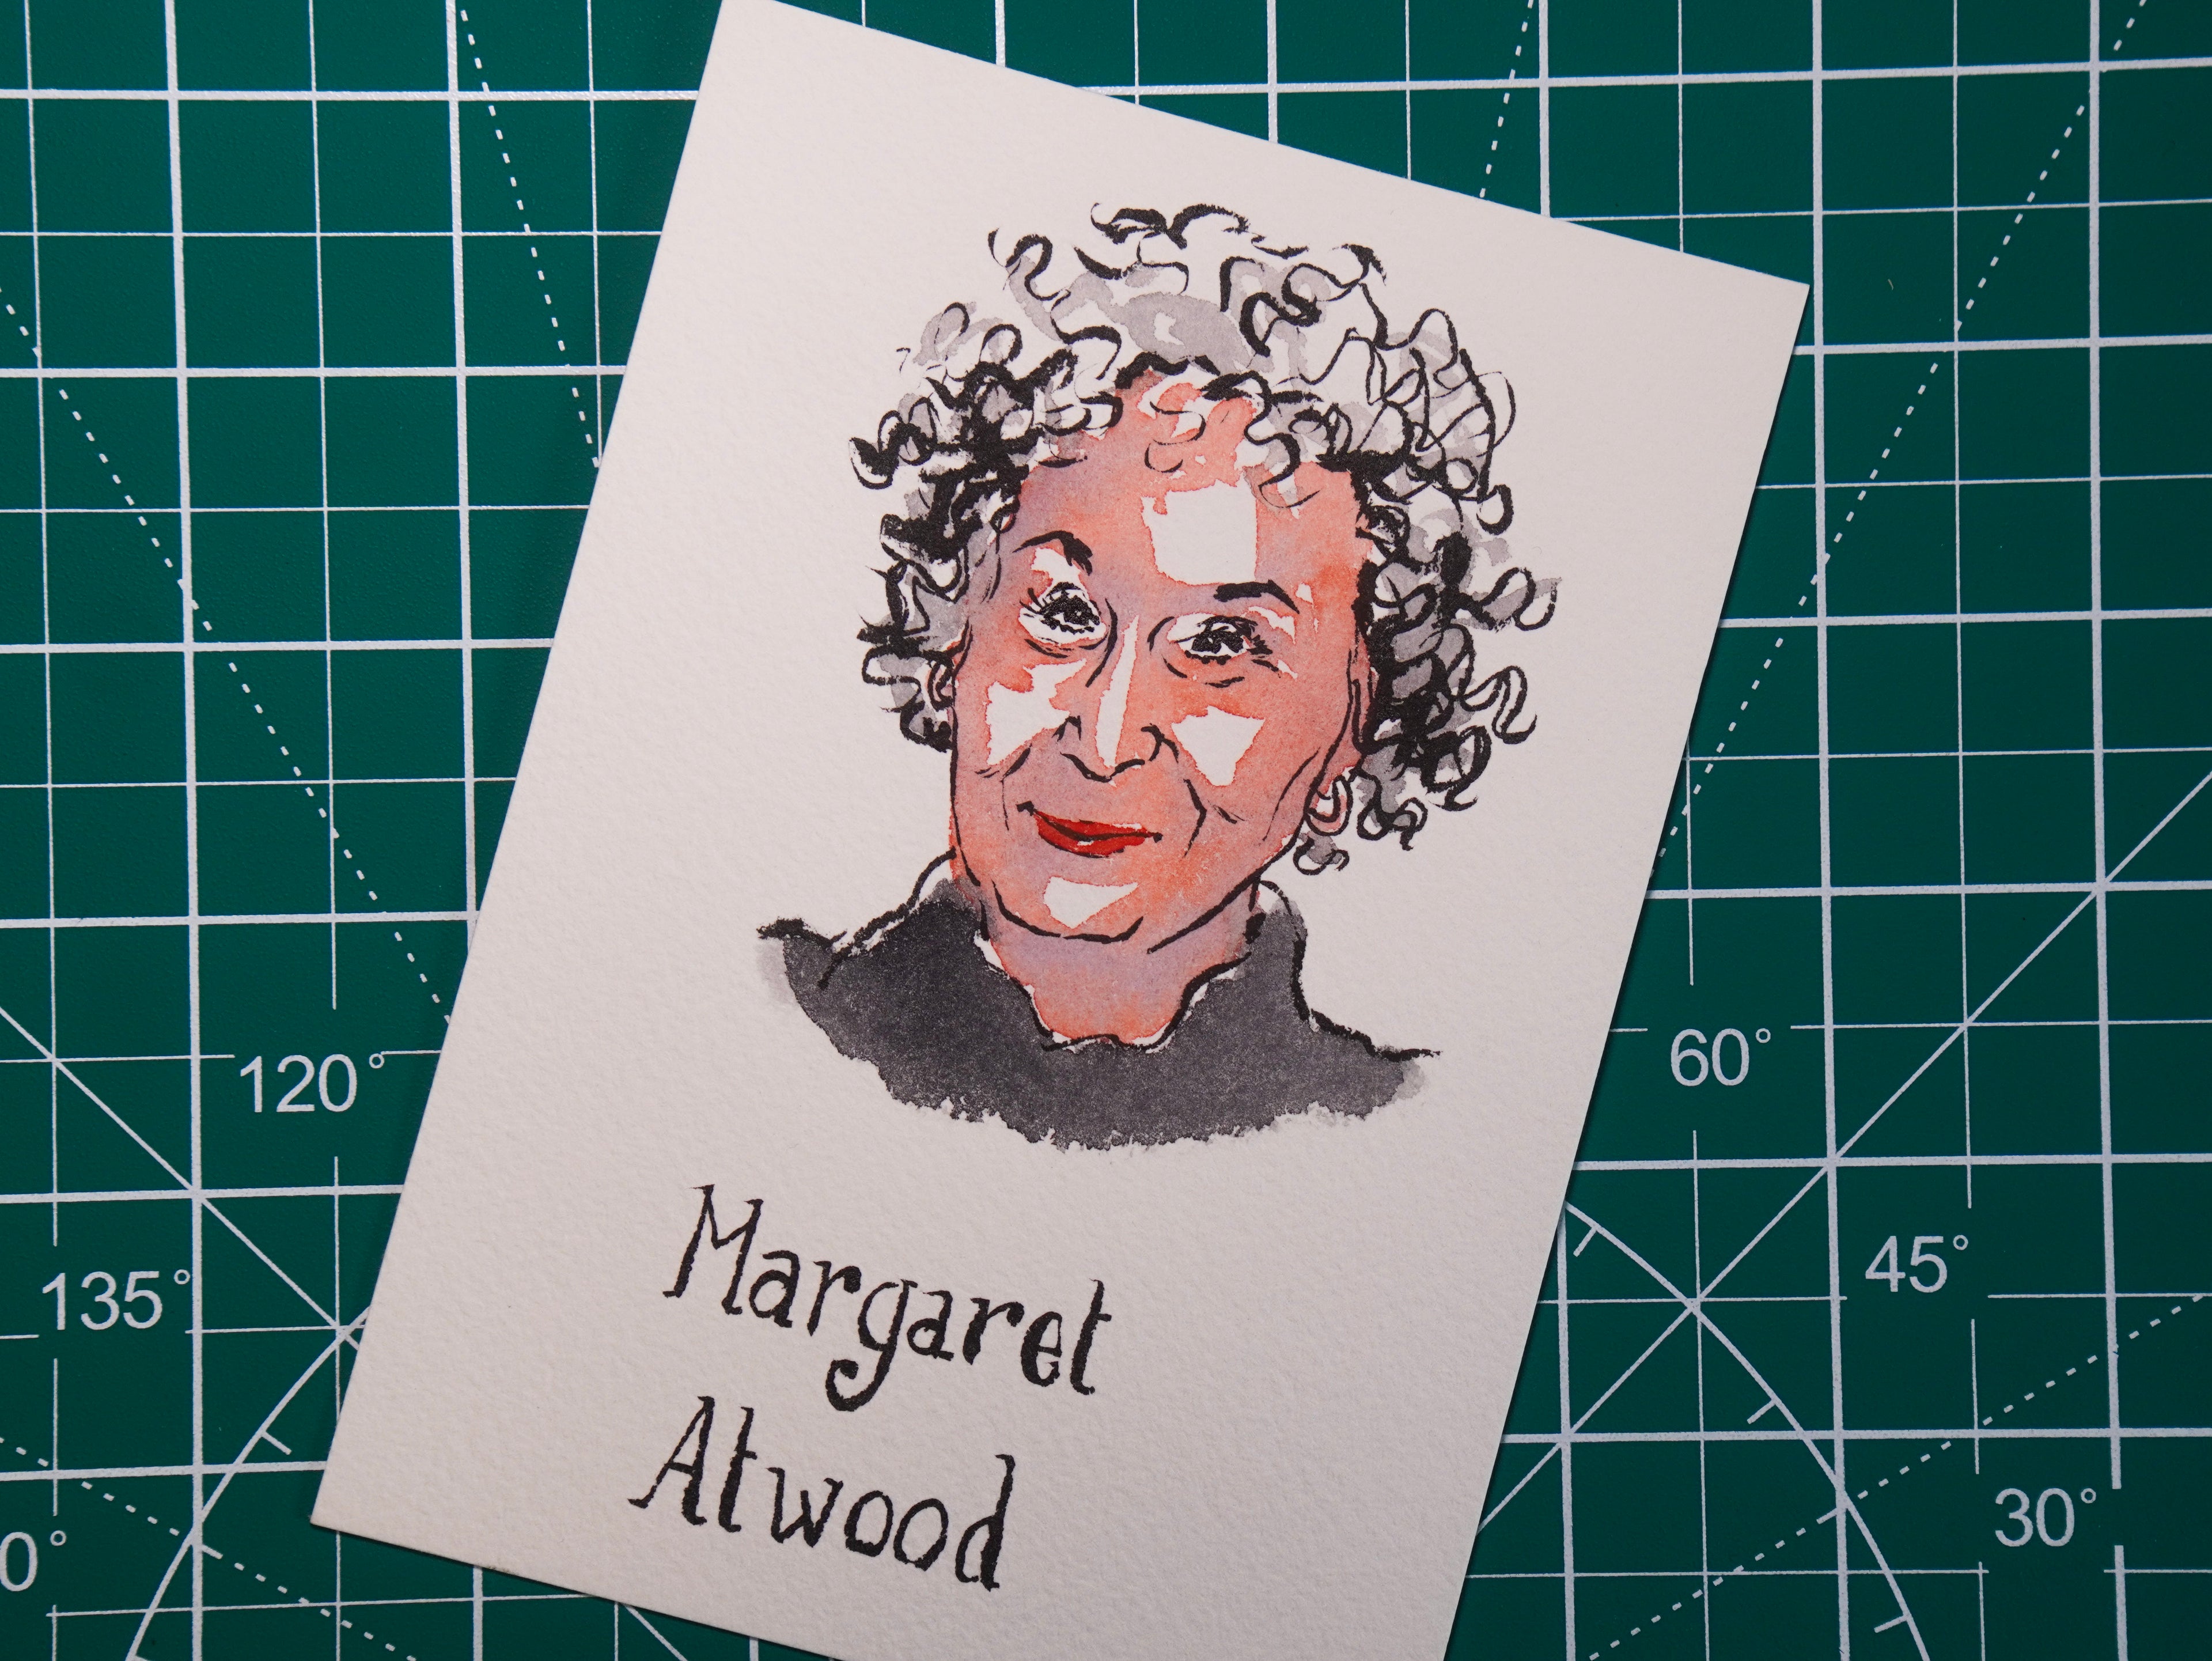 Margaret
Atwood
120°
60°
135°
45°
30°
0°